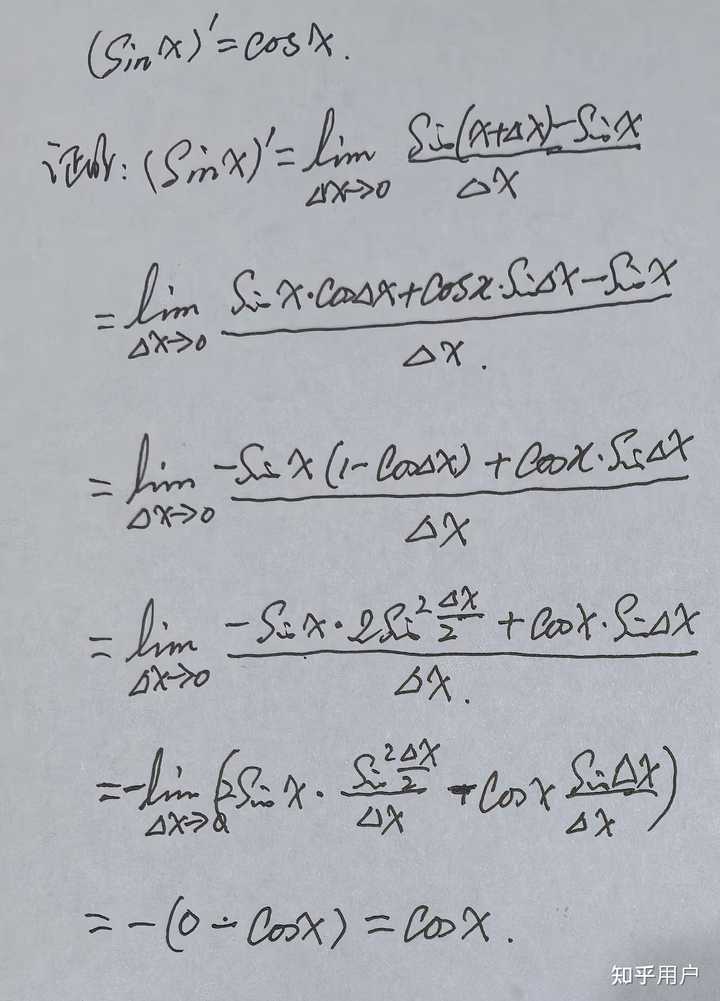 (sinx)'=cosx.
证明: (sinx)'=lim Δx→0 (sin(x+Δx)-sinx)/Δx
=lim Δx→0 (sinx·cosΔx+cosx·sinΔx-sinx)/Δx.
=lim Δx→0 (-sinx(1-cosΔx)+cosx·sinΔx)/Δx
=lim Δx→0 (-sinx·2sin²(Δx/2)+cosx·sinΔx)/Δx.
=-lim Δx→0 (2sinx·(sin²(Δx/2))/Δx - cosx (sinΔx)/Δx)
=-(0-cosx)=cosx.
知乎用户